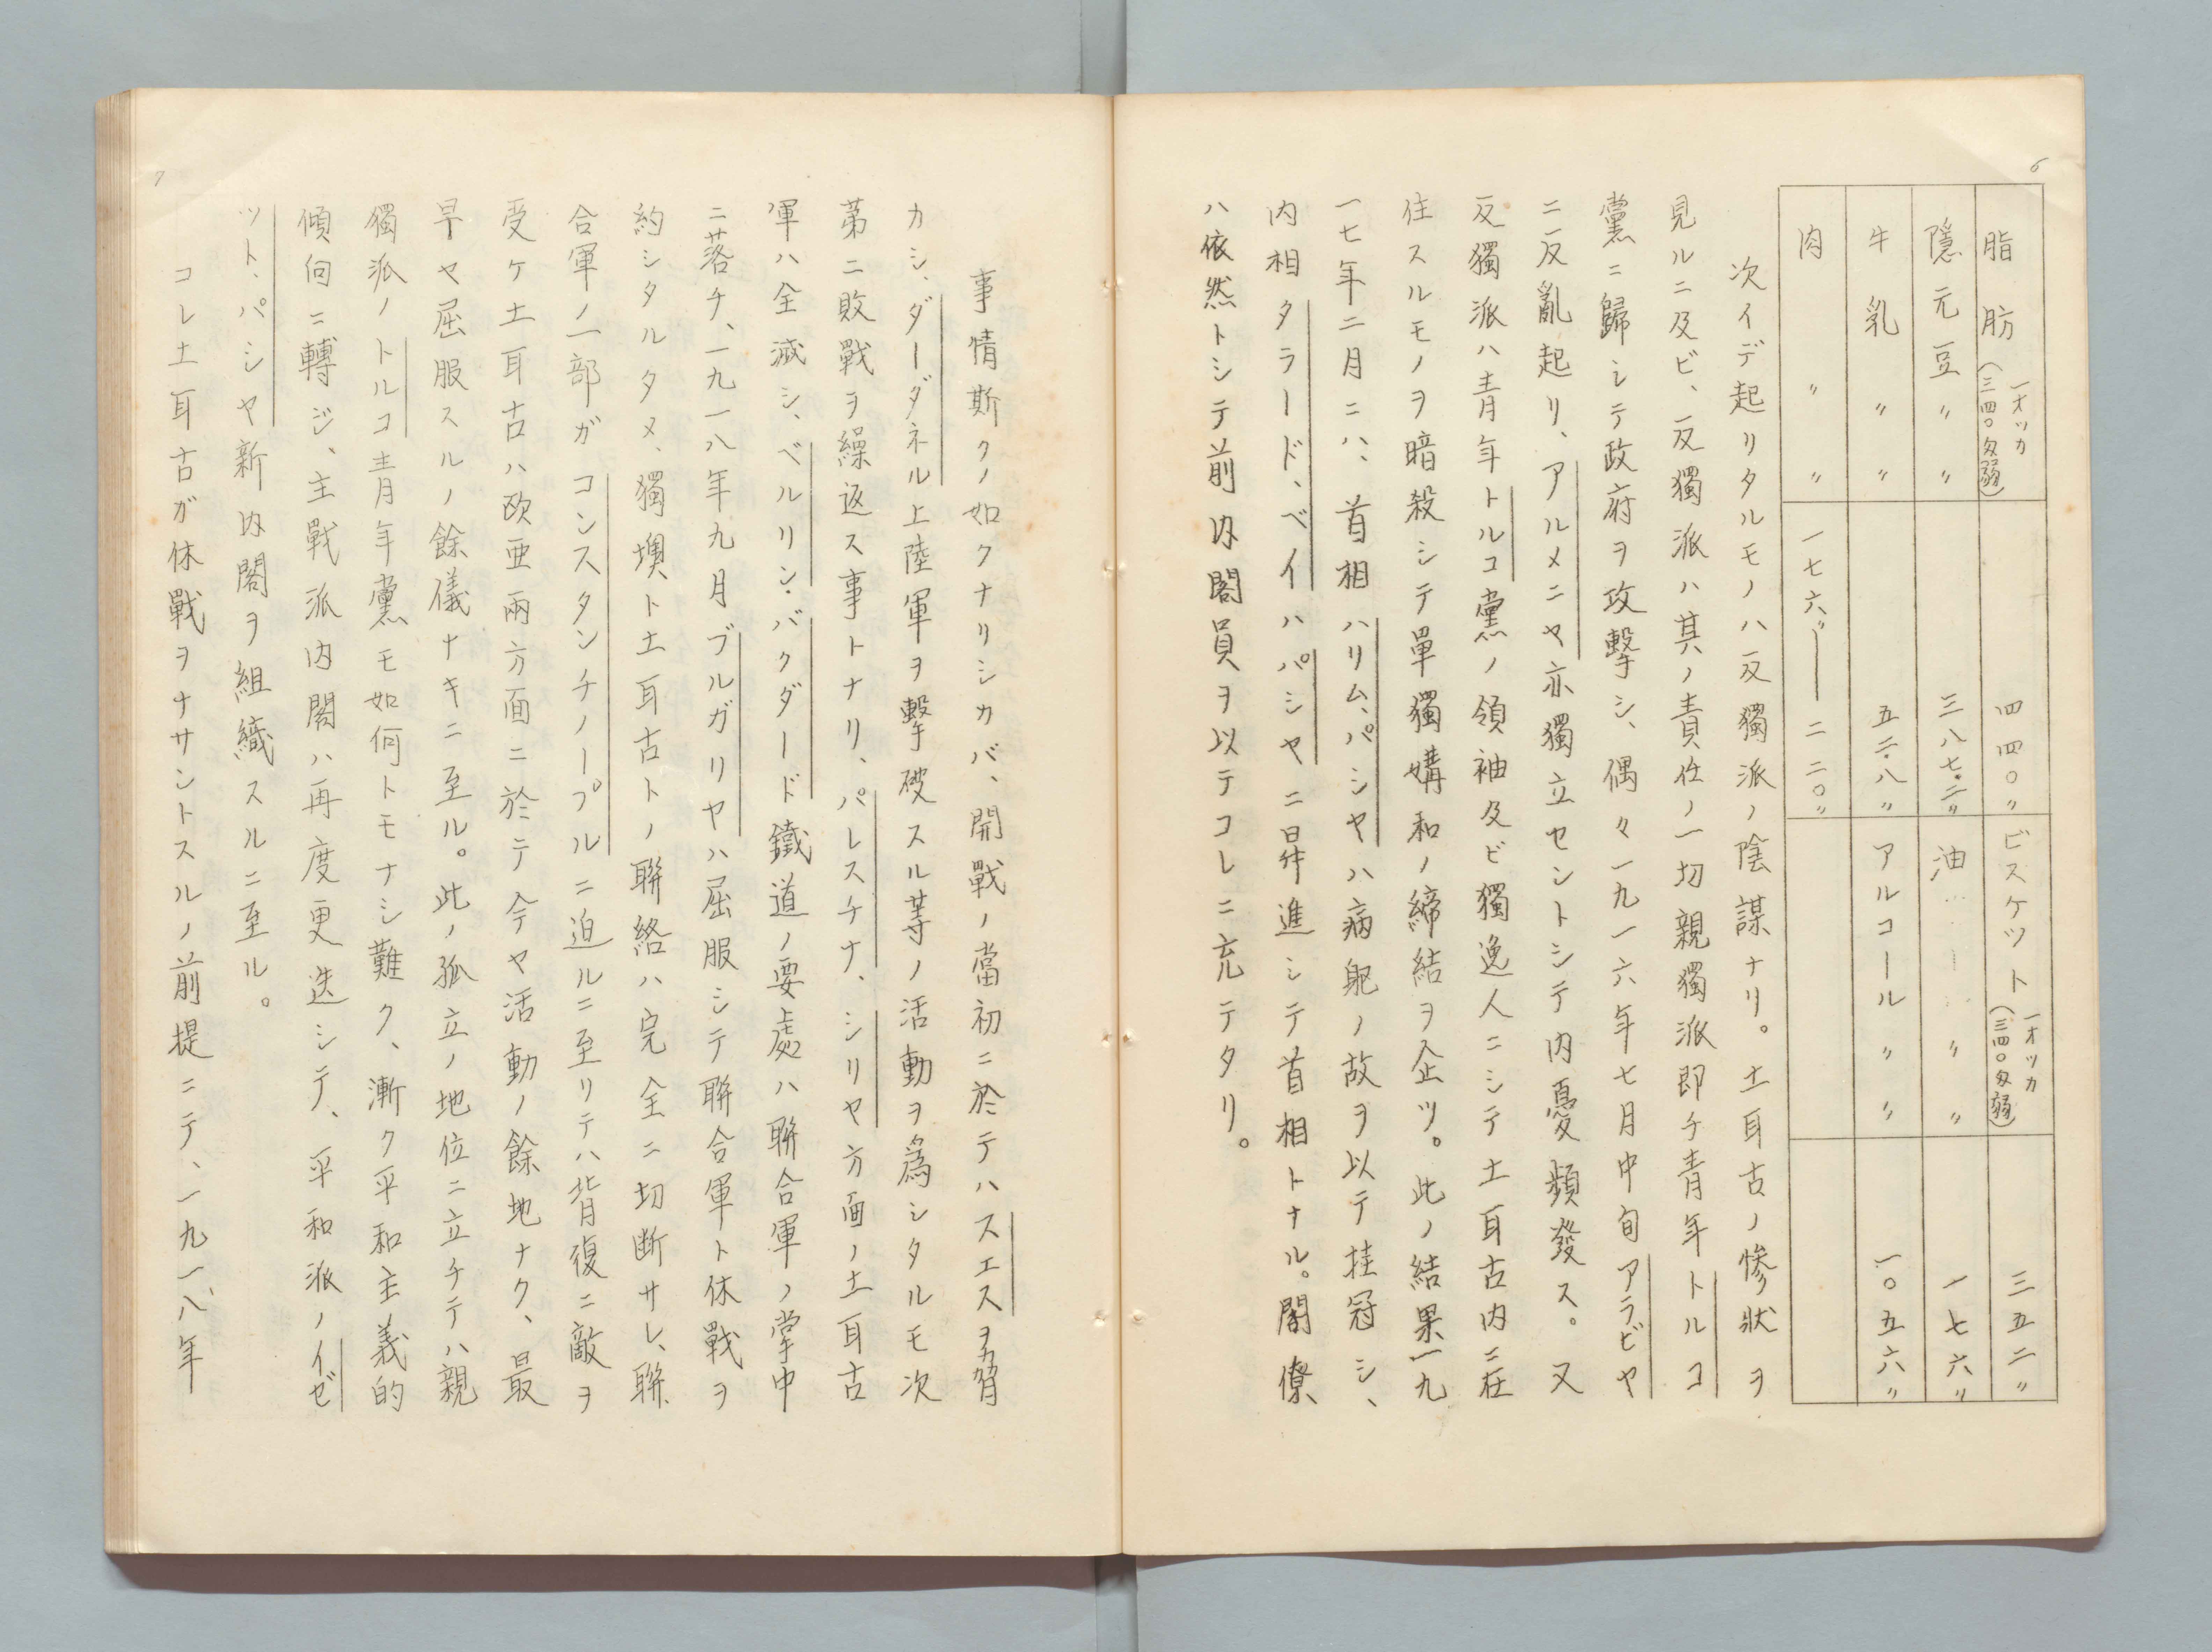 6
脂肪 一オッカ(三四〇匁弱) 四四〇〃 ビスケット 一オッカ(三四〇匁弱) 三五二〃
隠元豆〃〃 三八七.二〃 油……〃〃 一七六〃
牛乳〃〃 五二.八〃 アルコール〃〃 一〇五六〃
肉〃〃 一七六〃——二二〇〃
次イデ起リタルモノハ反獨派ノ陰謀ナリ。土耳古ノ惨状ヲ
見ルニ及ビ、反獨派ハ其ノ責任ノ一切親獨派即チ青年トルコ
黨ニ歸シテ政府ヲ攻擊シ、偶々一九一六年七月中旬アラビヤ
ニ反亂起リ、アルメニヤ亦獨立セントシテ内憂頻發ス。又
反獨派ハ青年トルコ黨ノ領袖及ビ獨逸人ニシテ土耳古内ニ在
住スルモノヲ暗殺シテ單獨媾和ノ締結ヲ企ツ。此ノ結果一九
一七年二月ニハ、首相ハリム、パシヤハ病躯ノ故ヲ以テ挂冠シ、
内相タラード、ベイハパシヤニ昇進シテ首相トナル。閣僚
ハ依然トシテ前内閣員ヲ以テコレニ充テタリ。
7
事情斯クノ如クナリシカバ、開戰ノ當初ニ於テハスエスヲ脅
カシ、ダーダネル上陸軍ヲ擊破スル等ノ活動ヲ爲シタルモ次
第ニ敗戰ヲ繰返ス事トナリ、パレスチナ、シリヤ方面ノ土耳古
軍ハ全滅シ、ベルリン・バクダード鐵道ノ要處ハ聯合軍ノ掌中
ニ落チ、一九一八年九月ブルガリヤハ屈服シテ聯合軍ト休戰ヲ
約シタルタメ、獨墺ト土耳古トノ聯絡ハ完全ニ切断サレ、聯
合軍ノ一部ガコンスタンチノープルニ迫ルニ至リテハ背復ニ敵ヲ
受ケ土耳古ハ欧亜兩方面ニ於テ今ヤ活動ノ餘地ナク、最
早ヤ屈服スルノ餘儀ナキニ至ル。此ノ孤立ノ地位ニ立チテハ親
獨派ノトルコ青年黨モ如何トモナシ難ク、漸ク平和主義的
傾向ニ轉ジ、主戰派内閣ハ再度更迭シテ、平和派ノイゼ
ット、パシヤ新内閣ヲ組織スルニ至ル。
コレ土耳古ガ休戰ヲナサントスルノ前提ニテ、一九一八年